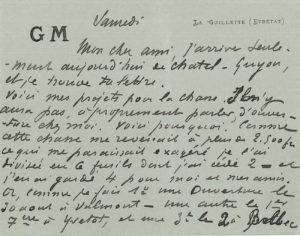 Samedi
GM
LA GUILLETTE (ÉTRETAT)
Mon cher ami j'arrive seule-
ment aujourd'hui de Châtel-Guyon,
et je trouve ta lettre.
Voici mes projets pour la chasse. Il n'y
aura pas, à proprement parler, d'ouver-
ture chez moi. Voici pourquoi. Comme
cette chasse me revenait à plus de 2.500 fr
ce qui me paraissait exagéré, je l'ai
divisée en 6 fusils dont j'ai cédé 2 — et
j'en ai gardé 4 pour moi et mes amis.
Or, comme je fais 1º une Ouverture le
30 août à Valmont — une autre le
7 à Yvetot, et une 3e le 2 à Bolbec